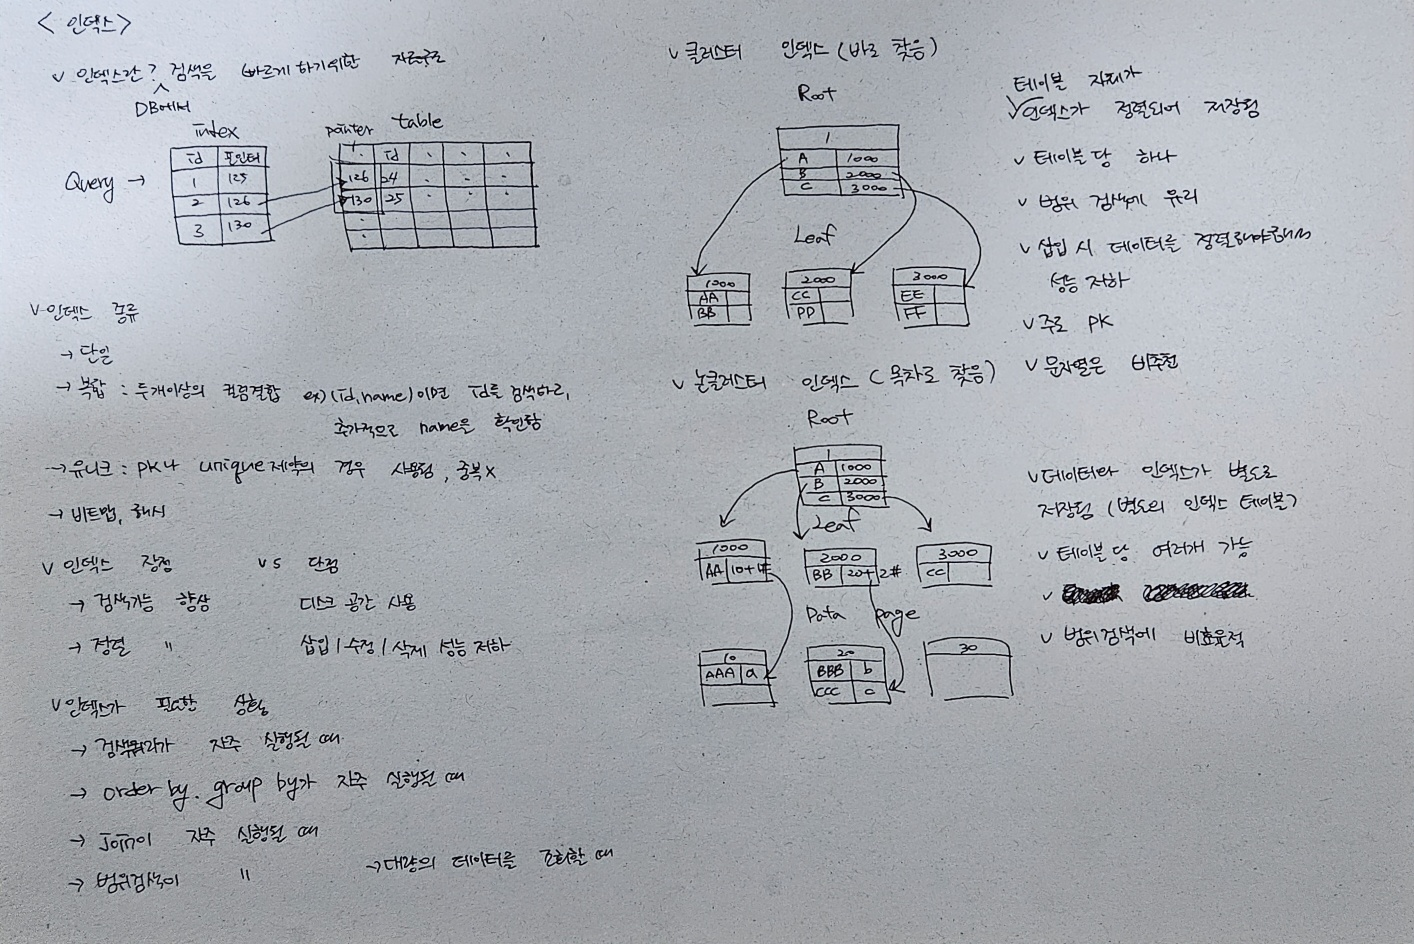 < 인덱스 >
v 인덱스란? 검색을 빠르게 하기위한 자료구조
DB에서
index
id 포인터
1 125
2 126
3 130
Query →
pointer table
· id · · ·
126 24 · · ·
130 25 · · ·
·
·
v 인덱스 종류
→ 단일
→ 복합 : 두개이상의 컬럼결합 ex) (id, name)이면 id를 검색하고,
추가적으로 name을 확인함
→ 유니크 : PK나 unique 제약의 경우 사용됨, 중복X
→ 비트맵, 해시
v 인덱스 장점 vs 단점
→ 검색기능 향상 디스크 공간 사용
→ 정렬 〃 삽입/수정/삭제 성능 저하
v 인덱스가 필요한 상황
→ 검색쿼리가 자주 실행될 때
→ order by. group by가 자주 실행될 때
→ Join이 자주 실행될 때
→ 범위검색이 〃 → 대량의 데이터를 조회할 때
v 클러스터 인덱스 (바로 찾음)
Root
1
A 1000
B 2000
C 3000
Leaf
1000
AA
BB
2000
CC
DD
3000
EE
FF
테이블 자체가
v 인덱스가 정렬되어 저장됨
v 테이블 당 하나
v 범위 검색에 유리
v 삽입 시 데이터를 정렬해야해서
성능 저하
v 주로 PK
v 문자열은 비추천
v 논클러스터 인덱스 (목차로 찾음)
Root
1
A 1000
B 2000
C 3000
Leaf
1000
AA 10+1#
2000
BB 20+2#
3000
CC
Data page
10
AAA a
20
BBB b
CCC c
30
v 데이터와 인덱스가 별도로
저장됨 (별도의 인덱스 테이블)
v 테이블당 여러개 가능
v
v 범위검색에 비효율적